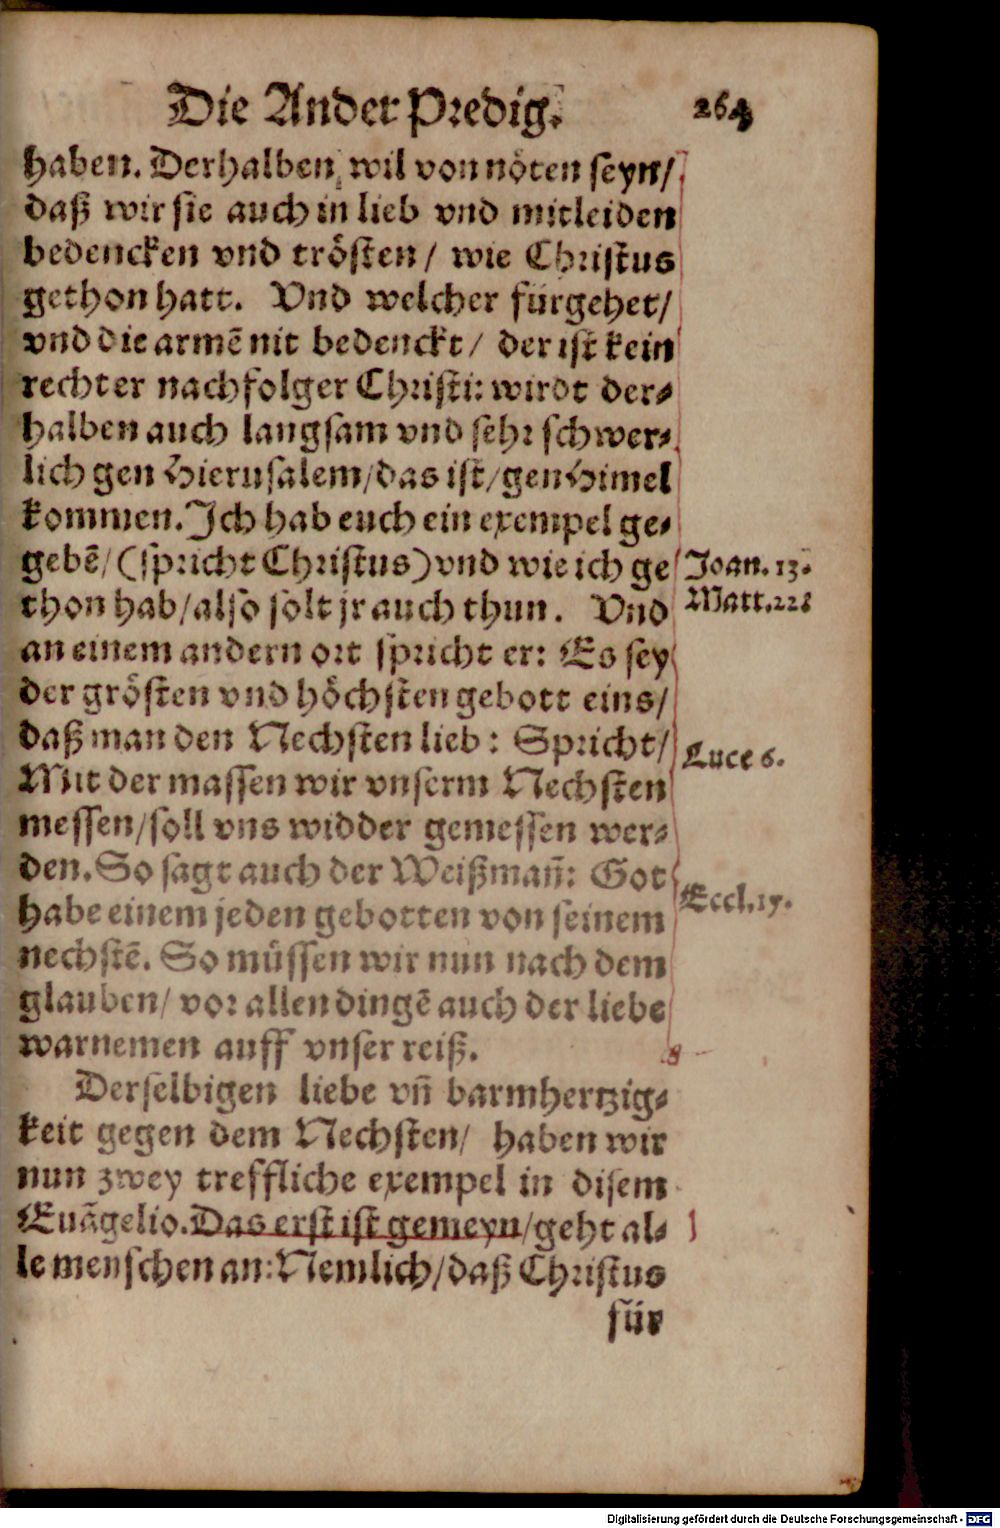 Die Ander Predig. 264
haben. Derhalben wil von nöten seyn/
daß wir sie auch in lieb vnd mitleiden
bedencken vnd trösten/ wie Christus
gethon hatt. Vnd welcher fürgehet/
vnd die armē nit bedenckt/ der ist kein
rechter nachfolger Christi: wirdt der⸗
halben auch langsam vnd sehr schwer⸗
lich gen Hierusalem/das ist/gen Himel
kommen. Ich hab euch ein exempel ge⸗
gebē/(spricht Christus)vnd wie ich ge
Joan. 13.
thon hab/also solt jr auch thun. Vnd
Matt. 22.
an einem andern ort spricht er: Es sey
der grösten vnd höchsten gebott eins/
daß man den Nechsten lieb: Spricht/
Luce 6.
Mit der massen wir vnserm Nechsten
messen/soll vns widder gemessen wer⸗
den. So sagt auch der Weißmañ: Got
Eccl. 17.
habe einem jeden gebotten von seinem
nechstē. So müssen wir nun nach dem
glauben/ vor allen dingē auch der liebe
warnemen auff vnser reiß.
Derselbigen liebe vñ barmhertzig⸗
keit gegen dem Nechsten/ haben wir
nun zwey treffliche exempel in disem
Euāgelio. Das erst ist gemeyn/geht al⸗
le menschen an: Nemlich/daß Christus
für
Digitalisierung gefördert durch die Deutsche Forschungsgemeinschaft - DFG